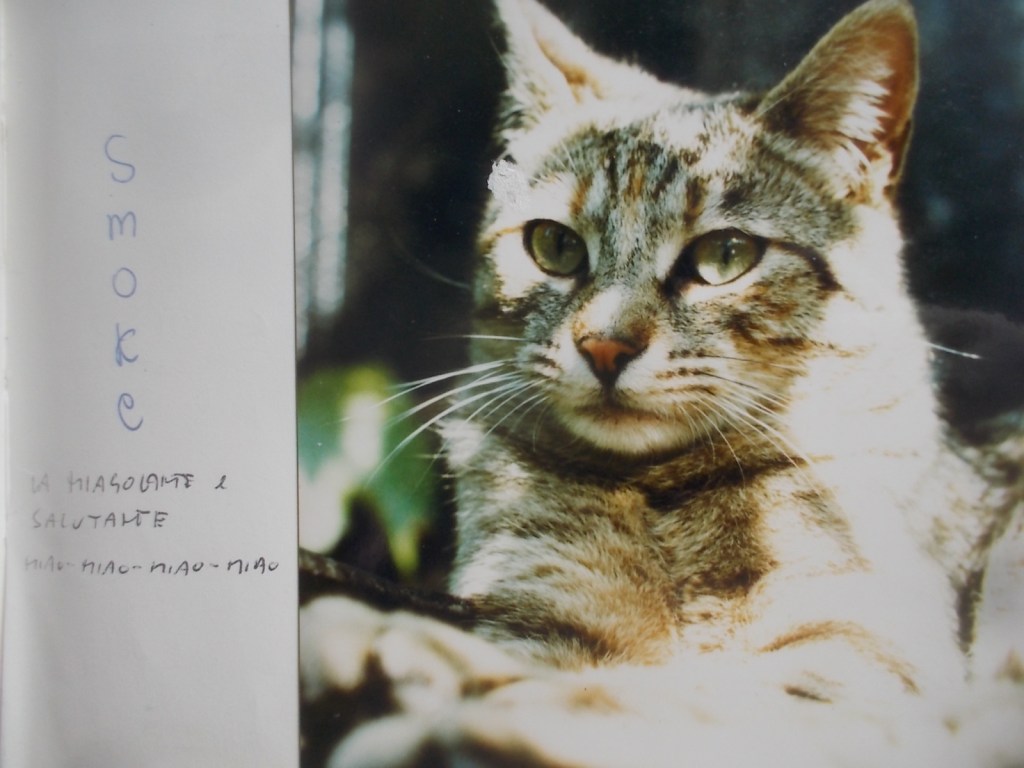 Smoke
LA MIAGOLANTE e
SALUTANTE
MIAO-MIAO-MIAO-MIAO